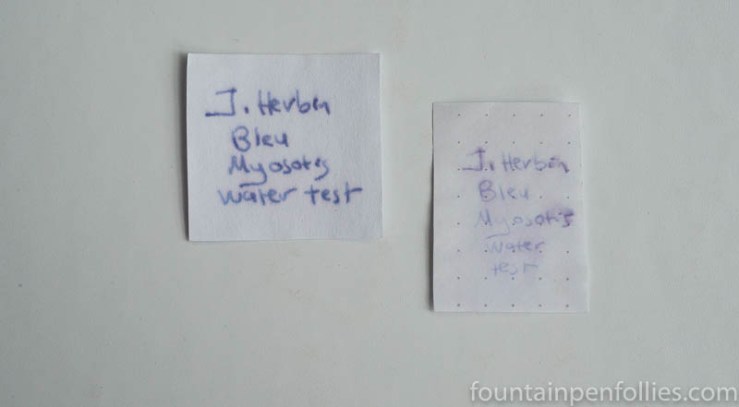 J. Herbin
Bleu
Myosotis
water test
J. Herbin
Bleu
Myosotis
water
test
fountainpenfollies.com